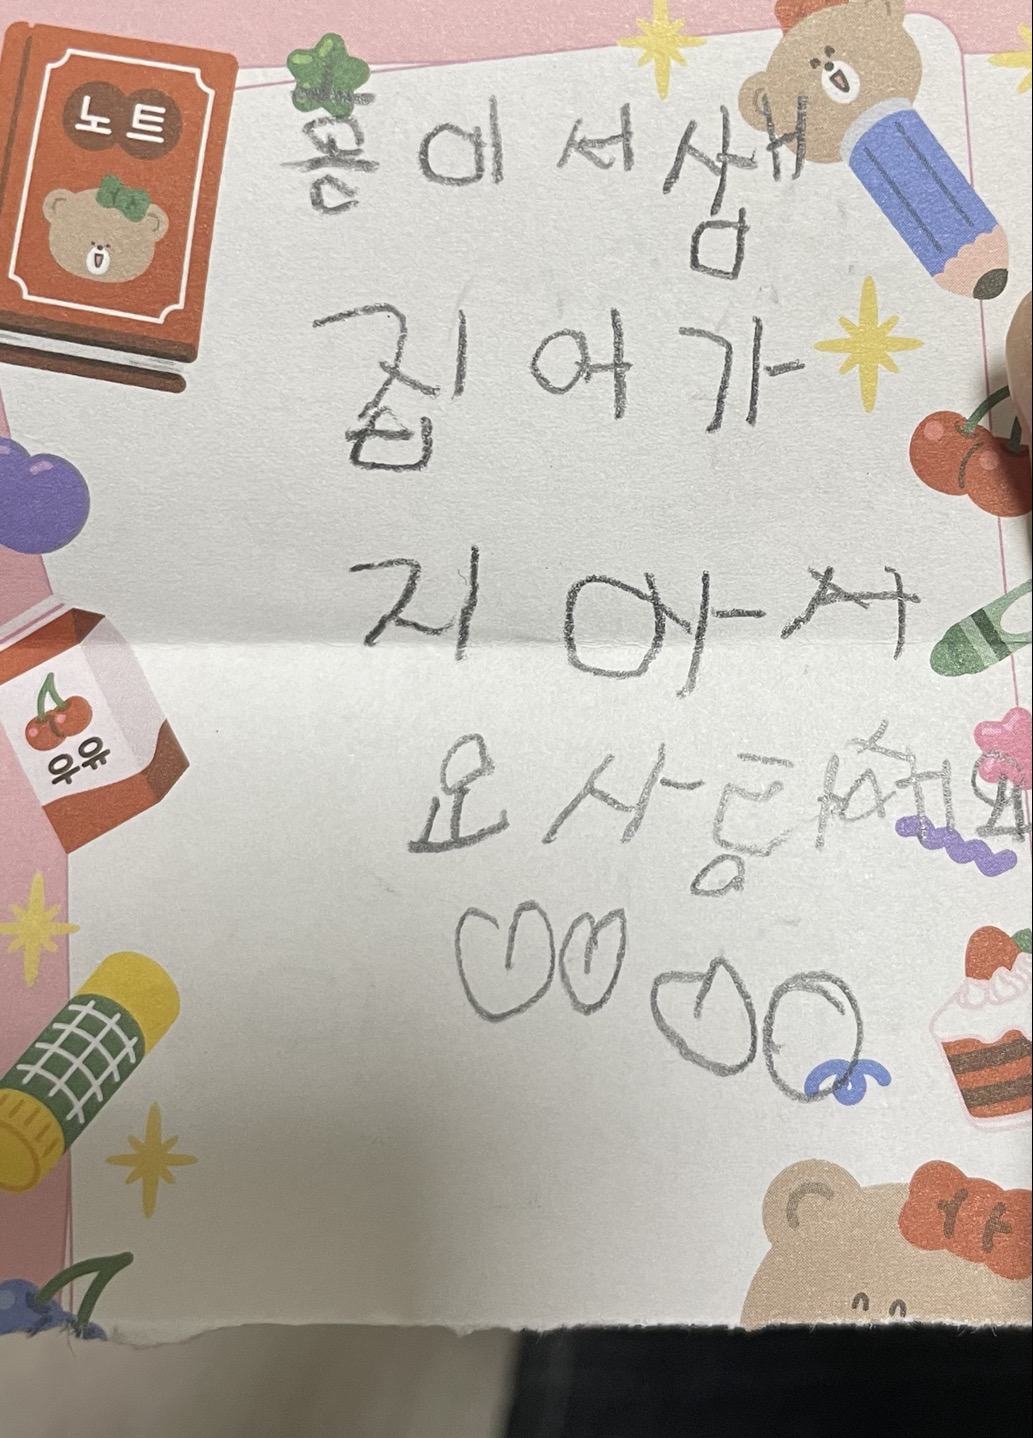 노트
이서샘
집어가
지아서
요사랑해요
우유